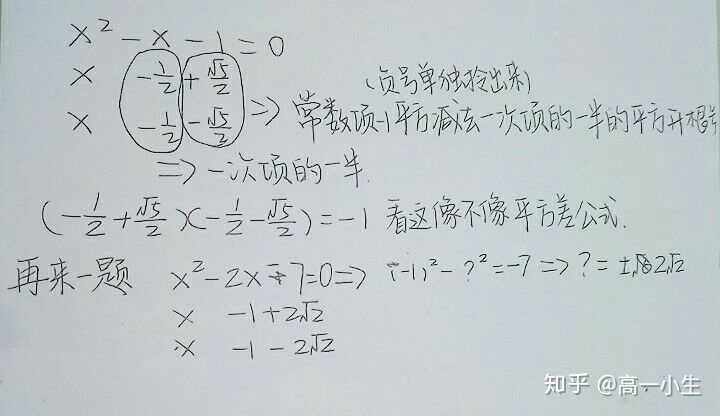 x² - x - 1 = 0
x -1/2 + √5/2 (负号单独拎出来)
x -1/2 - √5/2 => 常数项-1平方减去一次项的一半的平方开根号
=> 一次项的一半.
(-1/2 + √5/2)(-1/2 - √5/2) = -1 看这像不像平方差公式.
再来一题 x² - 2x - 7 = 0 => (-1)² - ?² = -7 => ? = ± 2√2
x -1 + 2√2
x -1 - 2√2
知乎 @高一小生